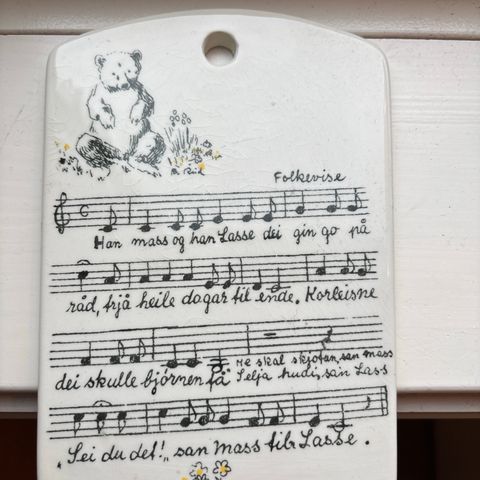 Folkevise
Han mass og han Lasse dei gin go på
råd, trjå heile dagar til ende. Korleisne
dei skulle bjørnen få" "Me skal skjotan, san mass
Selja hudi, san Lass
"Sei du det!" san mass til Lasse.